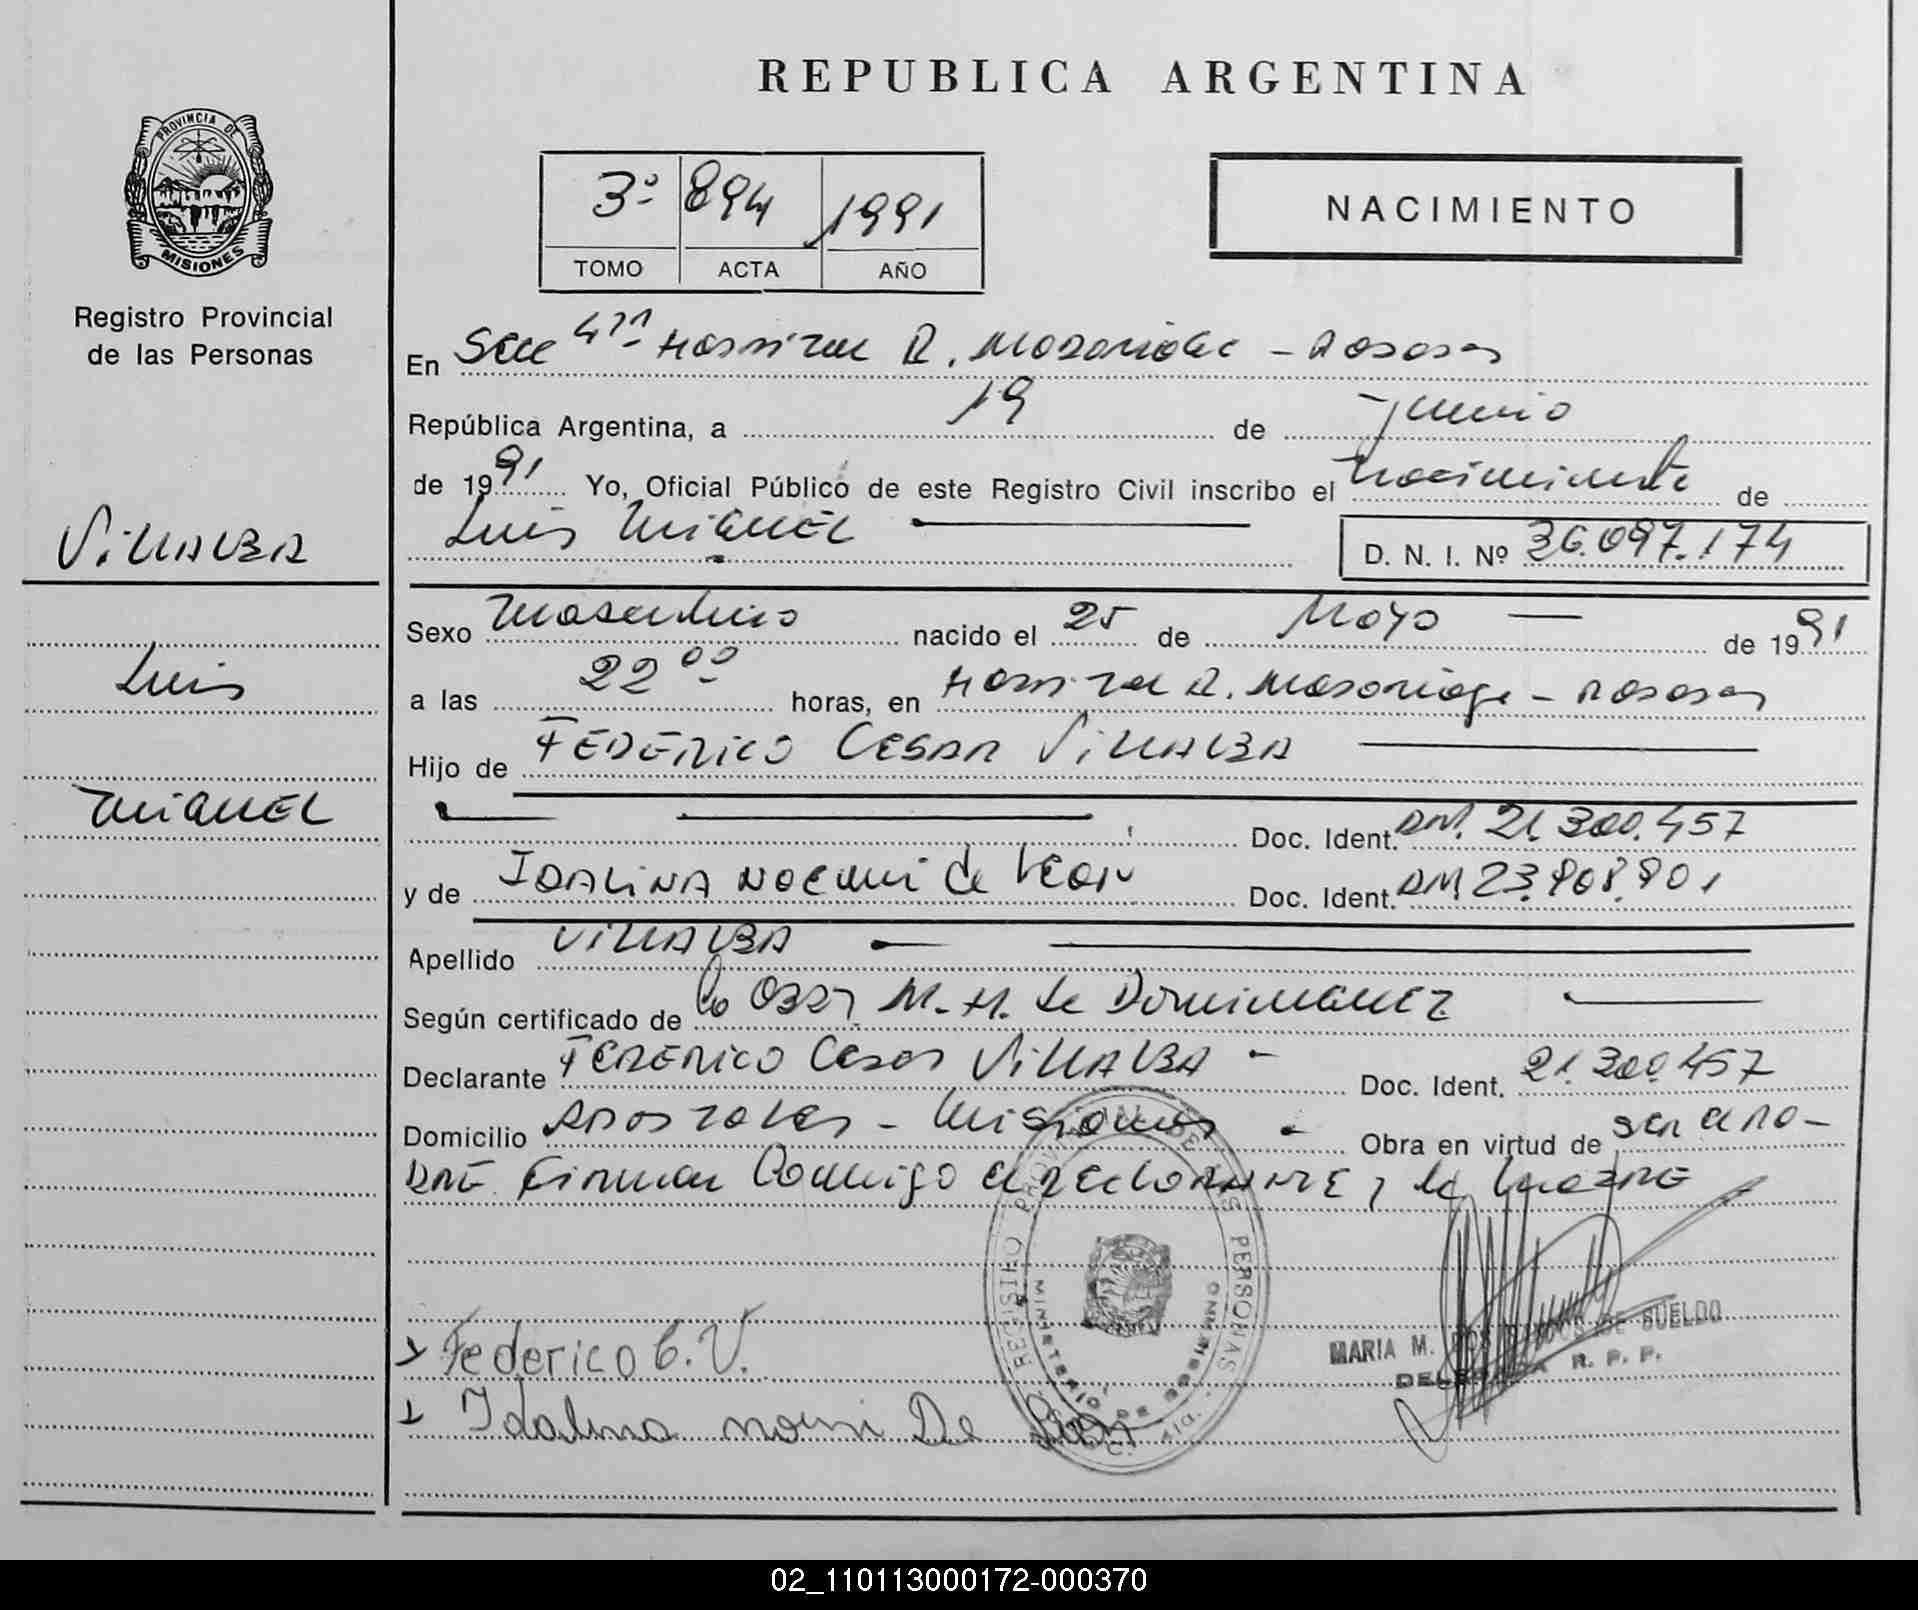 REPUBLICA ARGENTINA
PROVINCIA DE
MISIONES
Registro Provincial
de las Personas
3º 894 1991
TOMO ACTA AÑO
NACIMIENTO
En Secc 4ta Hospital R. Madariaga - Posadas
República Argentina, a 19 de junio
de 1991 Yo, Oficial Público de este Registro Civil inscribo el nacimiento de
Luis MIGUEL
D. N. I. Nº 36.097.174
VILLALBA
Luis
MIGUEL
Sexo masculino nacido el 25 de Mayo de 1991
a las 22 00 horas, en Hospital R. Madariaga - Posadas
Hijo de FEDERICO CESAR VILLALBA
Doc. Ident. DNI. 21.300.457
y de IDALINA NOEMI de LEON Doc. Ident. DNI 23.908.901
Apellido VILLALBA
Según certificado de la Obst. M. H. de DOMINGUEZ
Declarante FEDERICO Cesar VILLALBA - Doc. Ident. 21.300.457
Domicilio Apostoles - Misiones - Obra en virtud de ser el pa-
DRE. Firman Conmigo el DECLARANTE y la MADRE
REGISTRO PROVINCIAL DE LAS PERSONAS
MINISTERIO DE GOBIERNO
Federico C. V.
Idalina noemi De Leon
MARIA M. DOS SANTOS DE SUELDO
DELEGADA R. P. P.
02_110113000172-000370